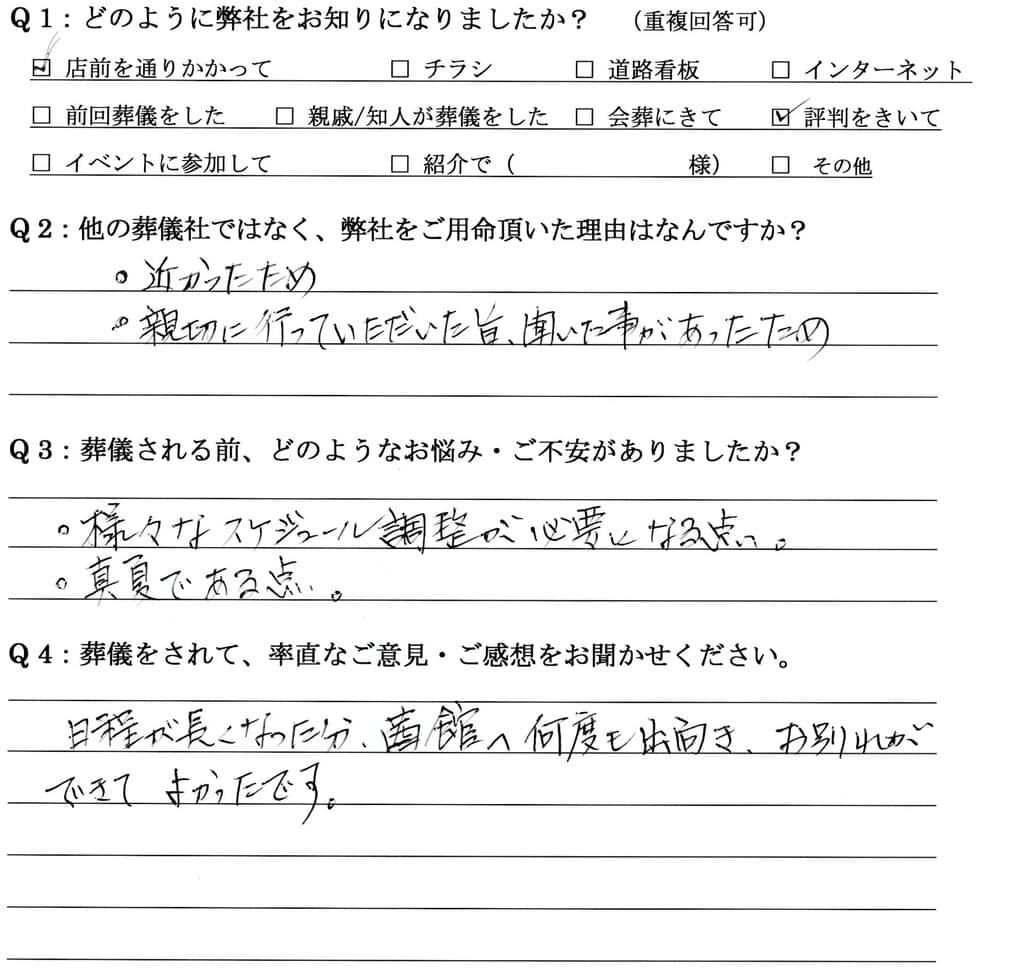 Q1：どのように弊社をお知りになりましたか？　（重複回答可）
☑ 店前を通りかかって　□ チラシ　□ 道路看板　□ インターネット
□ 前回葬儀をした　□ 親戚/知人が葬儀をした　□ 会葬にきて　☑ 評判をきいて
□ イベントに参加して　□ 紹介で（　　　　　　　様）　□ その他
Q2：他の葬儀社ではなく、弊社をご用命頂いた理由はなんですか？
。近かったため
。親切に行っていただいた旨、聞いた事があったため
Q3：葬儀される前、どのようなお悩み・ご不安がありましたか？
。様々なスケジュール調整が必要になる点。
。真夏である点。
Q4：葬儀をされて、率直なご意見・ご感想をお聞かせください。
日程が長くなった分、館へ何度も出向き、お別れが
できてよかったです。